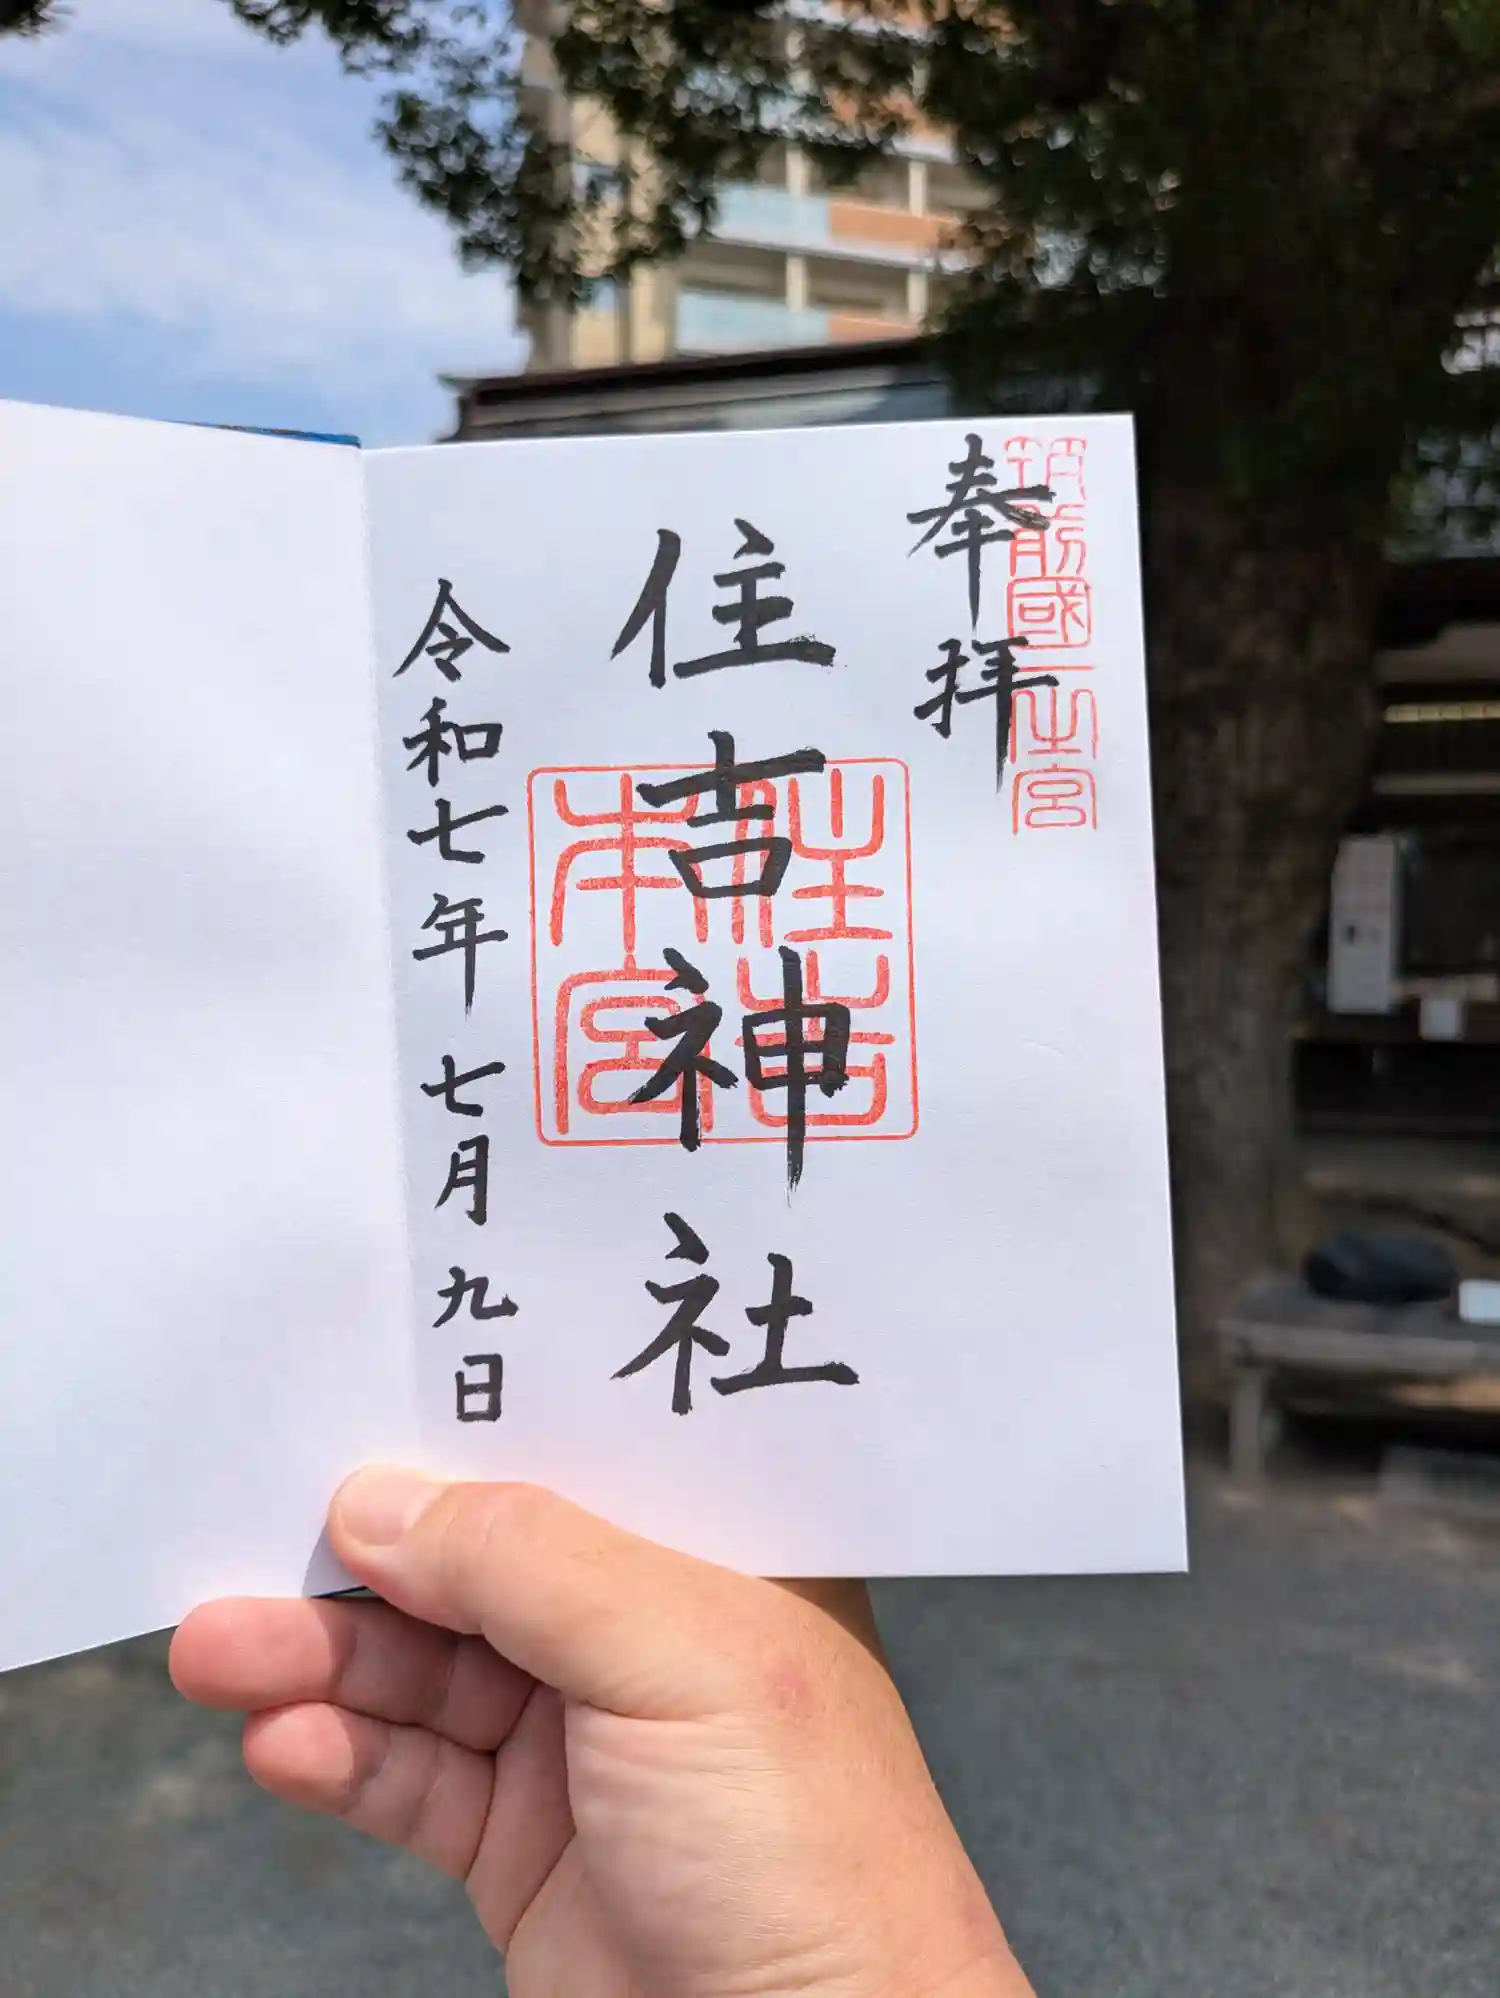 奉拝
筑前國一之宮
住吉神社
住吉本宮
令和七年 七月九日